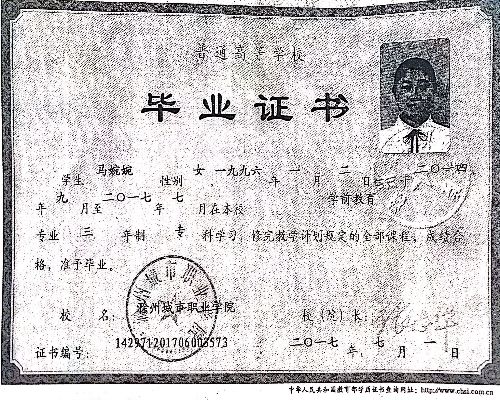 普通高等学校
毕业证书
马婉婉 女 一九九六 一 二 二〇一四
学生 性别 年 月 日生,于
九 二〇一七 七 学前教育
年 月至 年 月在本校
专业 三 年制 专 科学习,修完教学计划规定的全部课程,成绩合
格,准予毕业。
校 名: 滁州城市职业学院 校(院)长:
142971201706003573 二〇一七 七 一
证书编号: 年 月 日
中华人民共和国教育部学历证书查询网址:http://www.chsi.com.cn